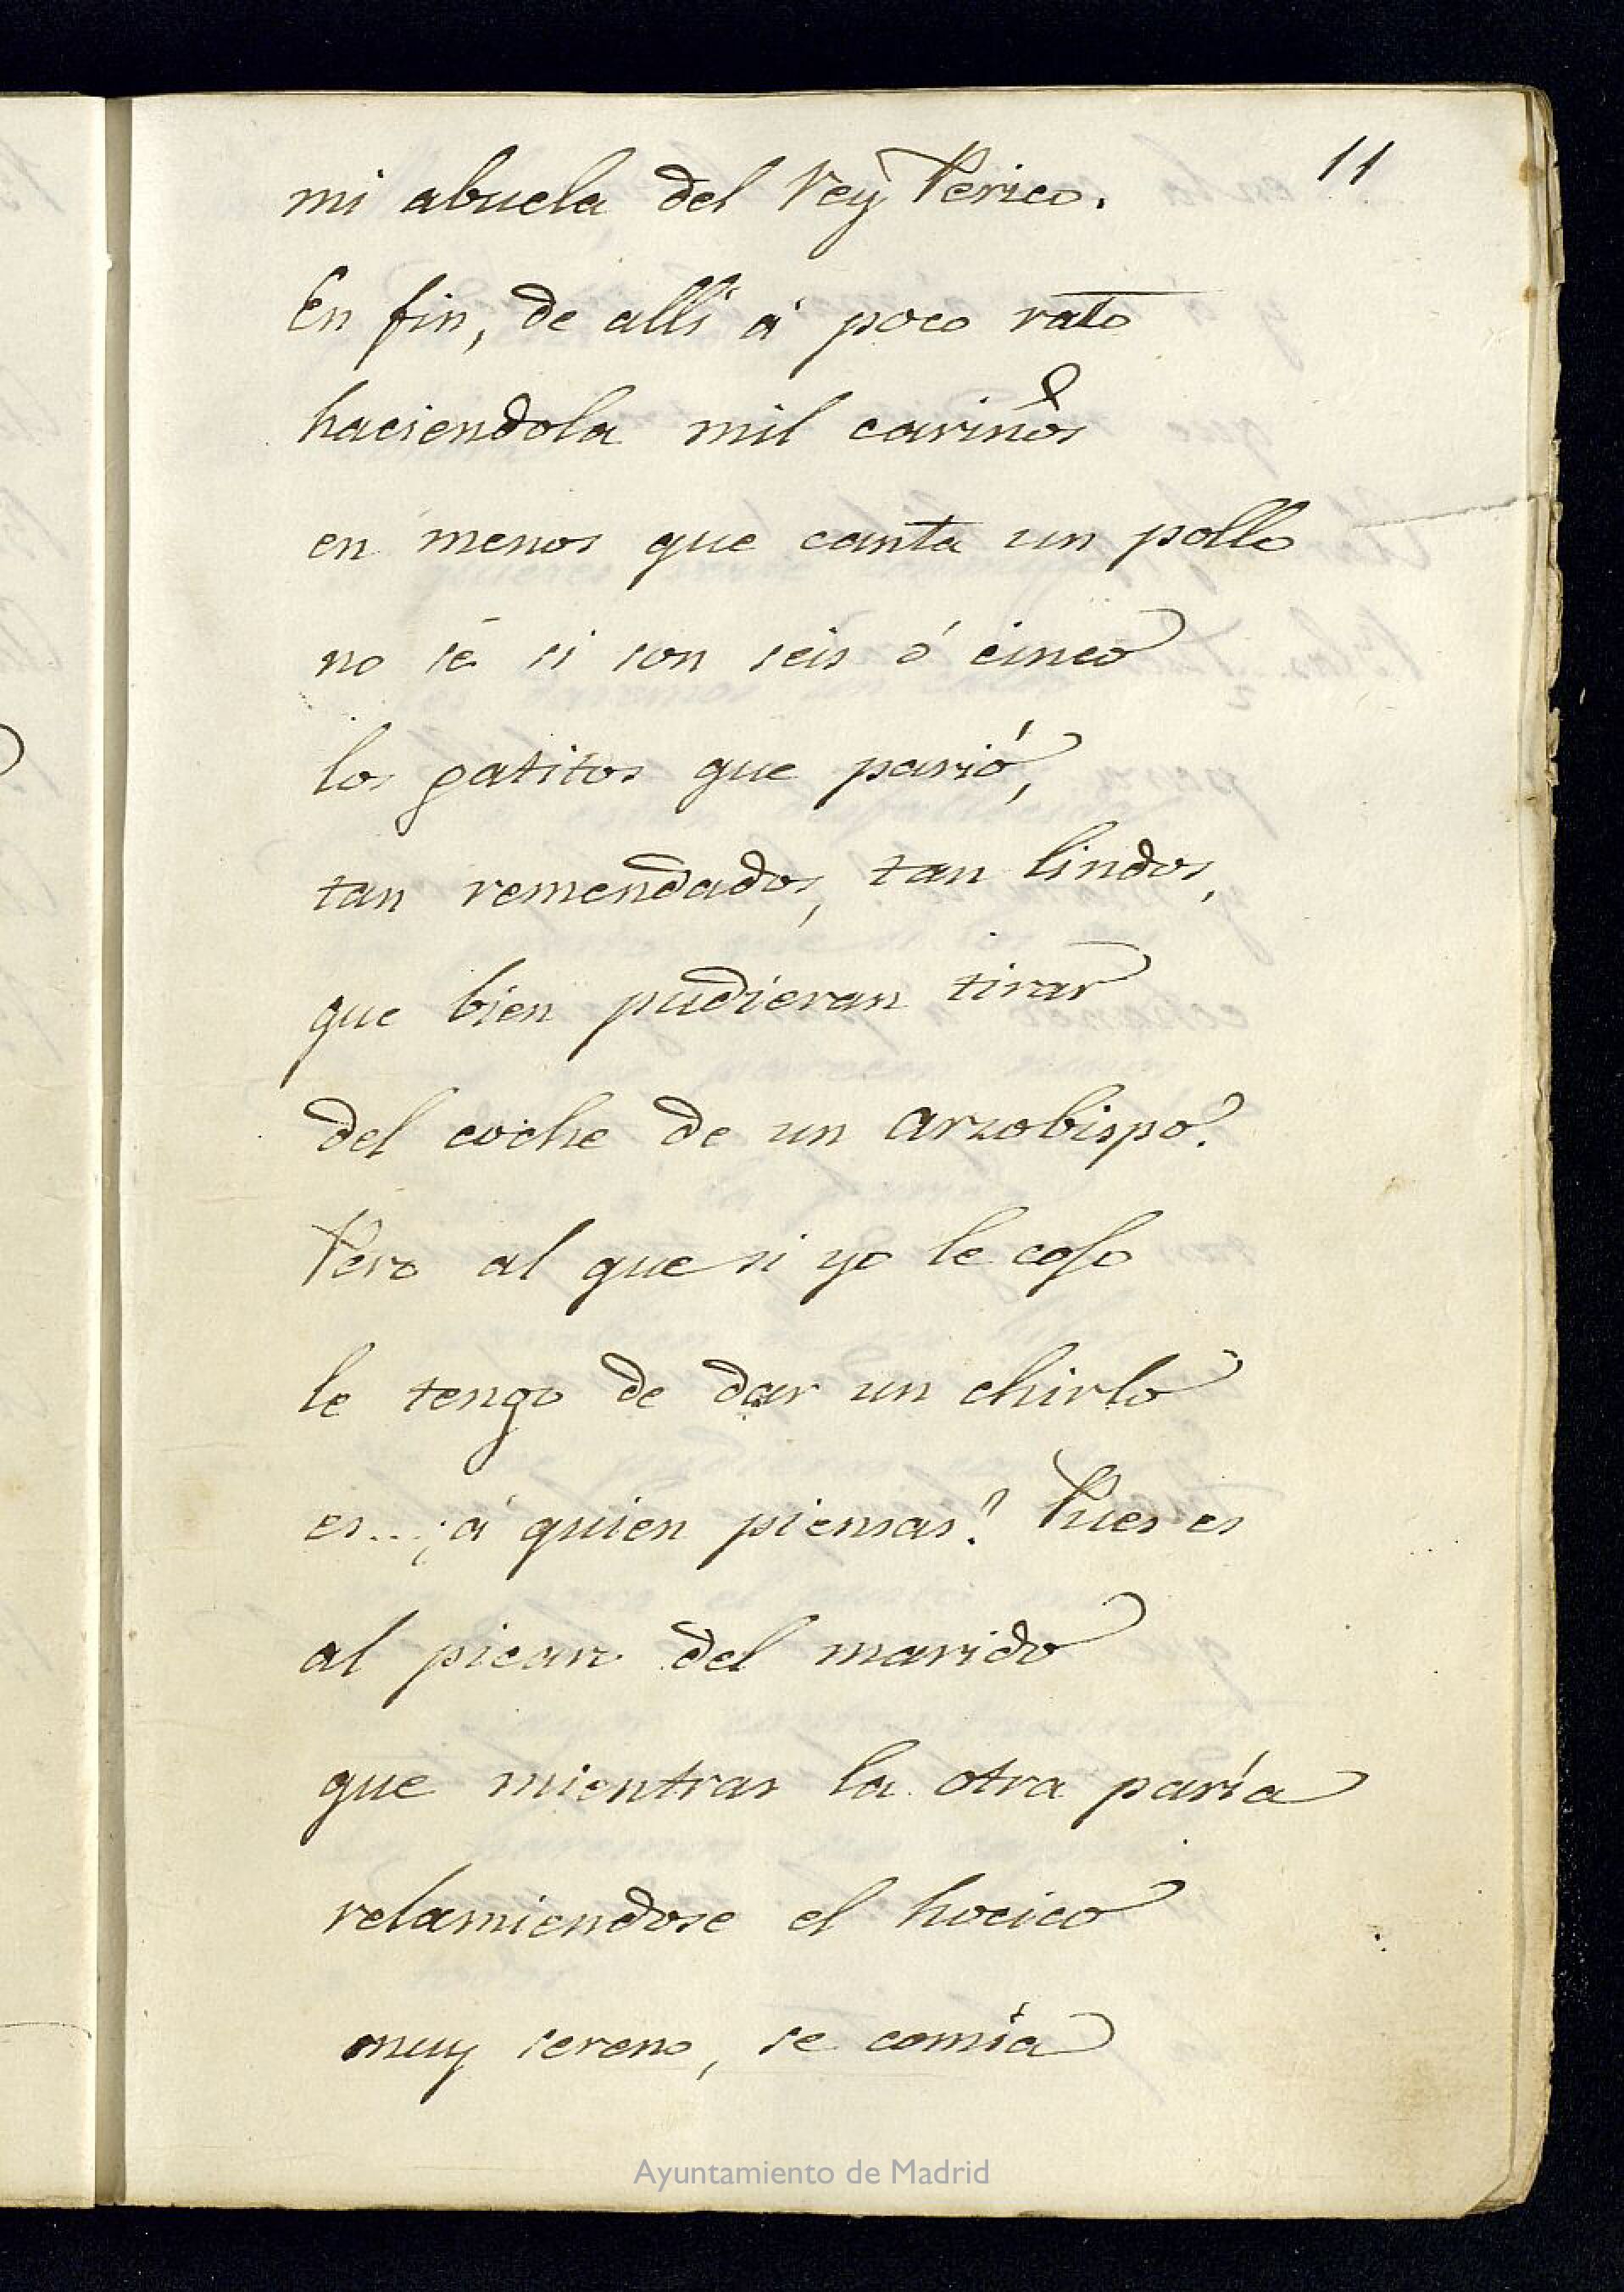 11
mi abuela del Rey Perico.
En fin, de allí á poco rato
haciendola mil cariños
en menos que canta un pollo
no sé si son seis ó cinco
los gatitos que parió,
tan remendados, tan lindos,
que bien pudieran tirar
del coche de un arzobispo.
Pero al que si yo le cojo
le tengo de dar un chirlo
es...¿á quien piensas? Pues es
al picaro del marido
que mientras la otra paría
relamiendose el hocico
muy sereno, se comía
Ayuntamiento de Madrid